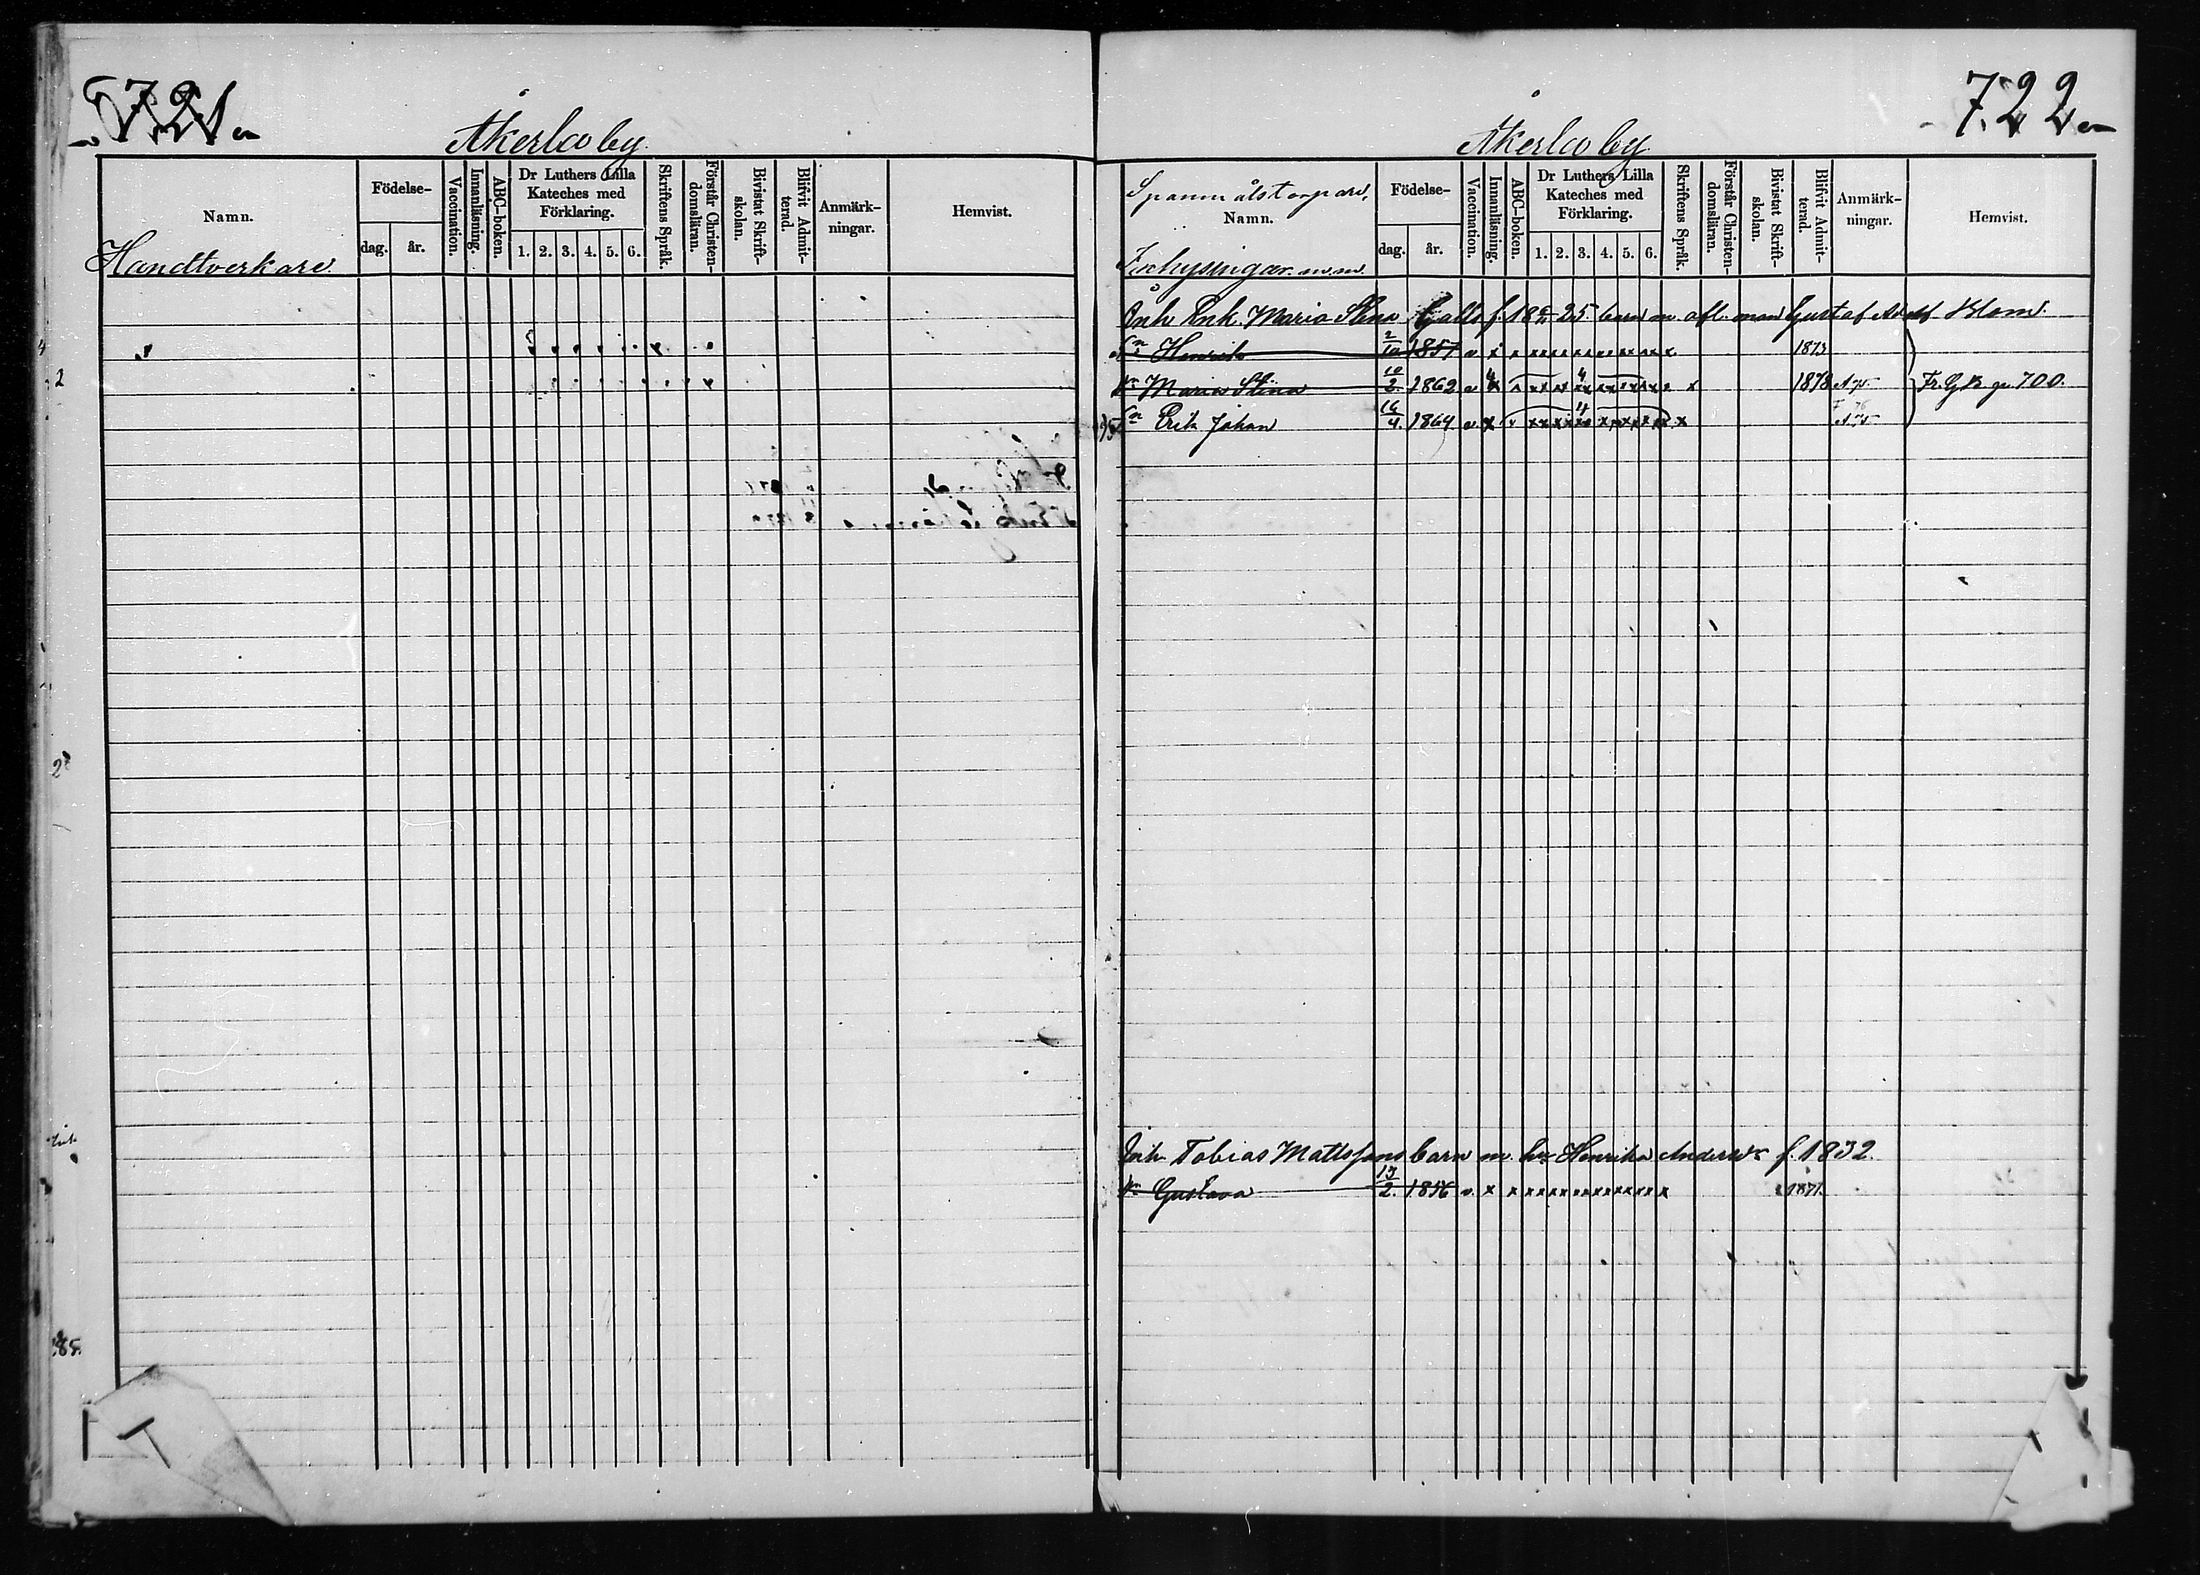 721
Åkerlax by.
Namn.
Födelse-
dag. år.
Vaccination.
Innanläsning.
ABC-boken.
Dr Luthers Lilla Kateches med Förklaring.
1. 2. 3. 4. 5. 6.
Skriftens Språk.
Förstår Christendomsläran.
Bivistat Skrift-skolan.
Blifvit Admit-terad.
Anmärk-ningar.
Hemvist.
Handtverkare
722
Åkerlax by
Spannmålstorpare,
Namn.
Inhysingar m.m.
Födelse-
dag. år.
Vaccination.
Innanläsning.
ABC-boken.
Dr Luthers Lilla Kateches med Förklaring.
1. 2. 3. 4. 5. 6.
Skriftens Språk.
Förstår Christen-domsläran.
Bivistat Skrift-skolan.
Blifvit Admit-terad.
Anmärk-ningar.
Hemvist.
Inh Enk. Maria Stina barn m. afl. man Gustaf Adolf Blom.
Sn Henrik 2/10 1857 v x x x x x x x x x x x x x x 1873
Dr Maria Stina 10/2 1862 v x 1878 Fr. G.B. p. 700.
Sn Erik Johan 16/4 1864 v x
Inh Tobias Mattssons barn m. hu Henrika Andersdr f. 1832.
Dr Gustava 13/2 1856 v x x x x x x x x x x x x x x 1871.